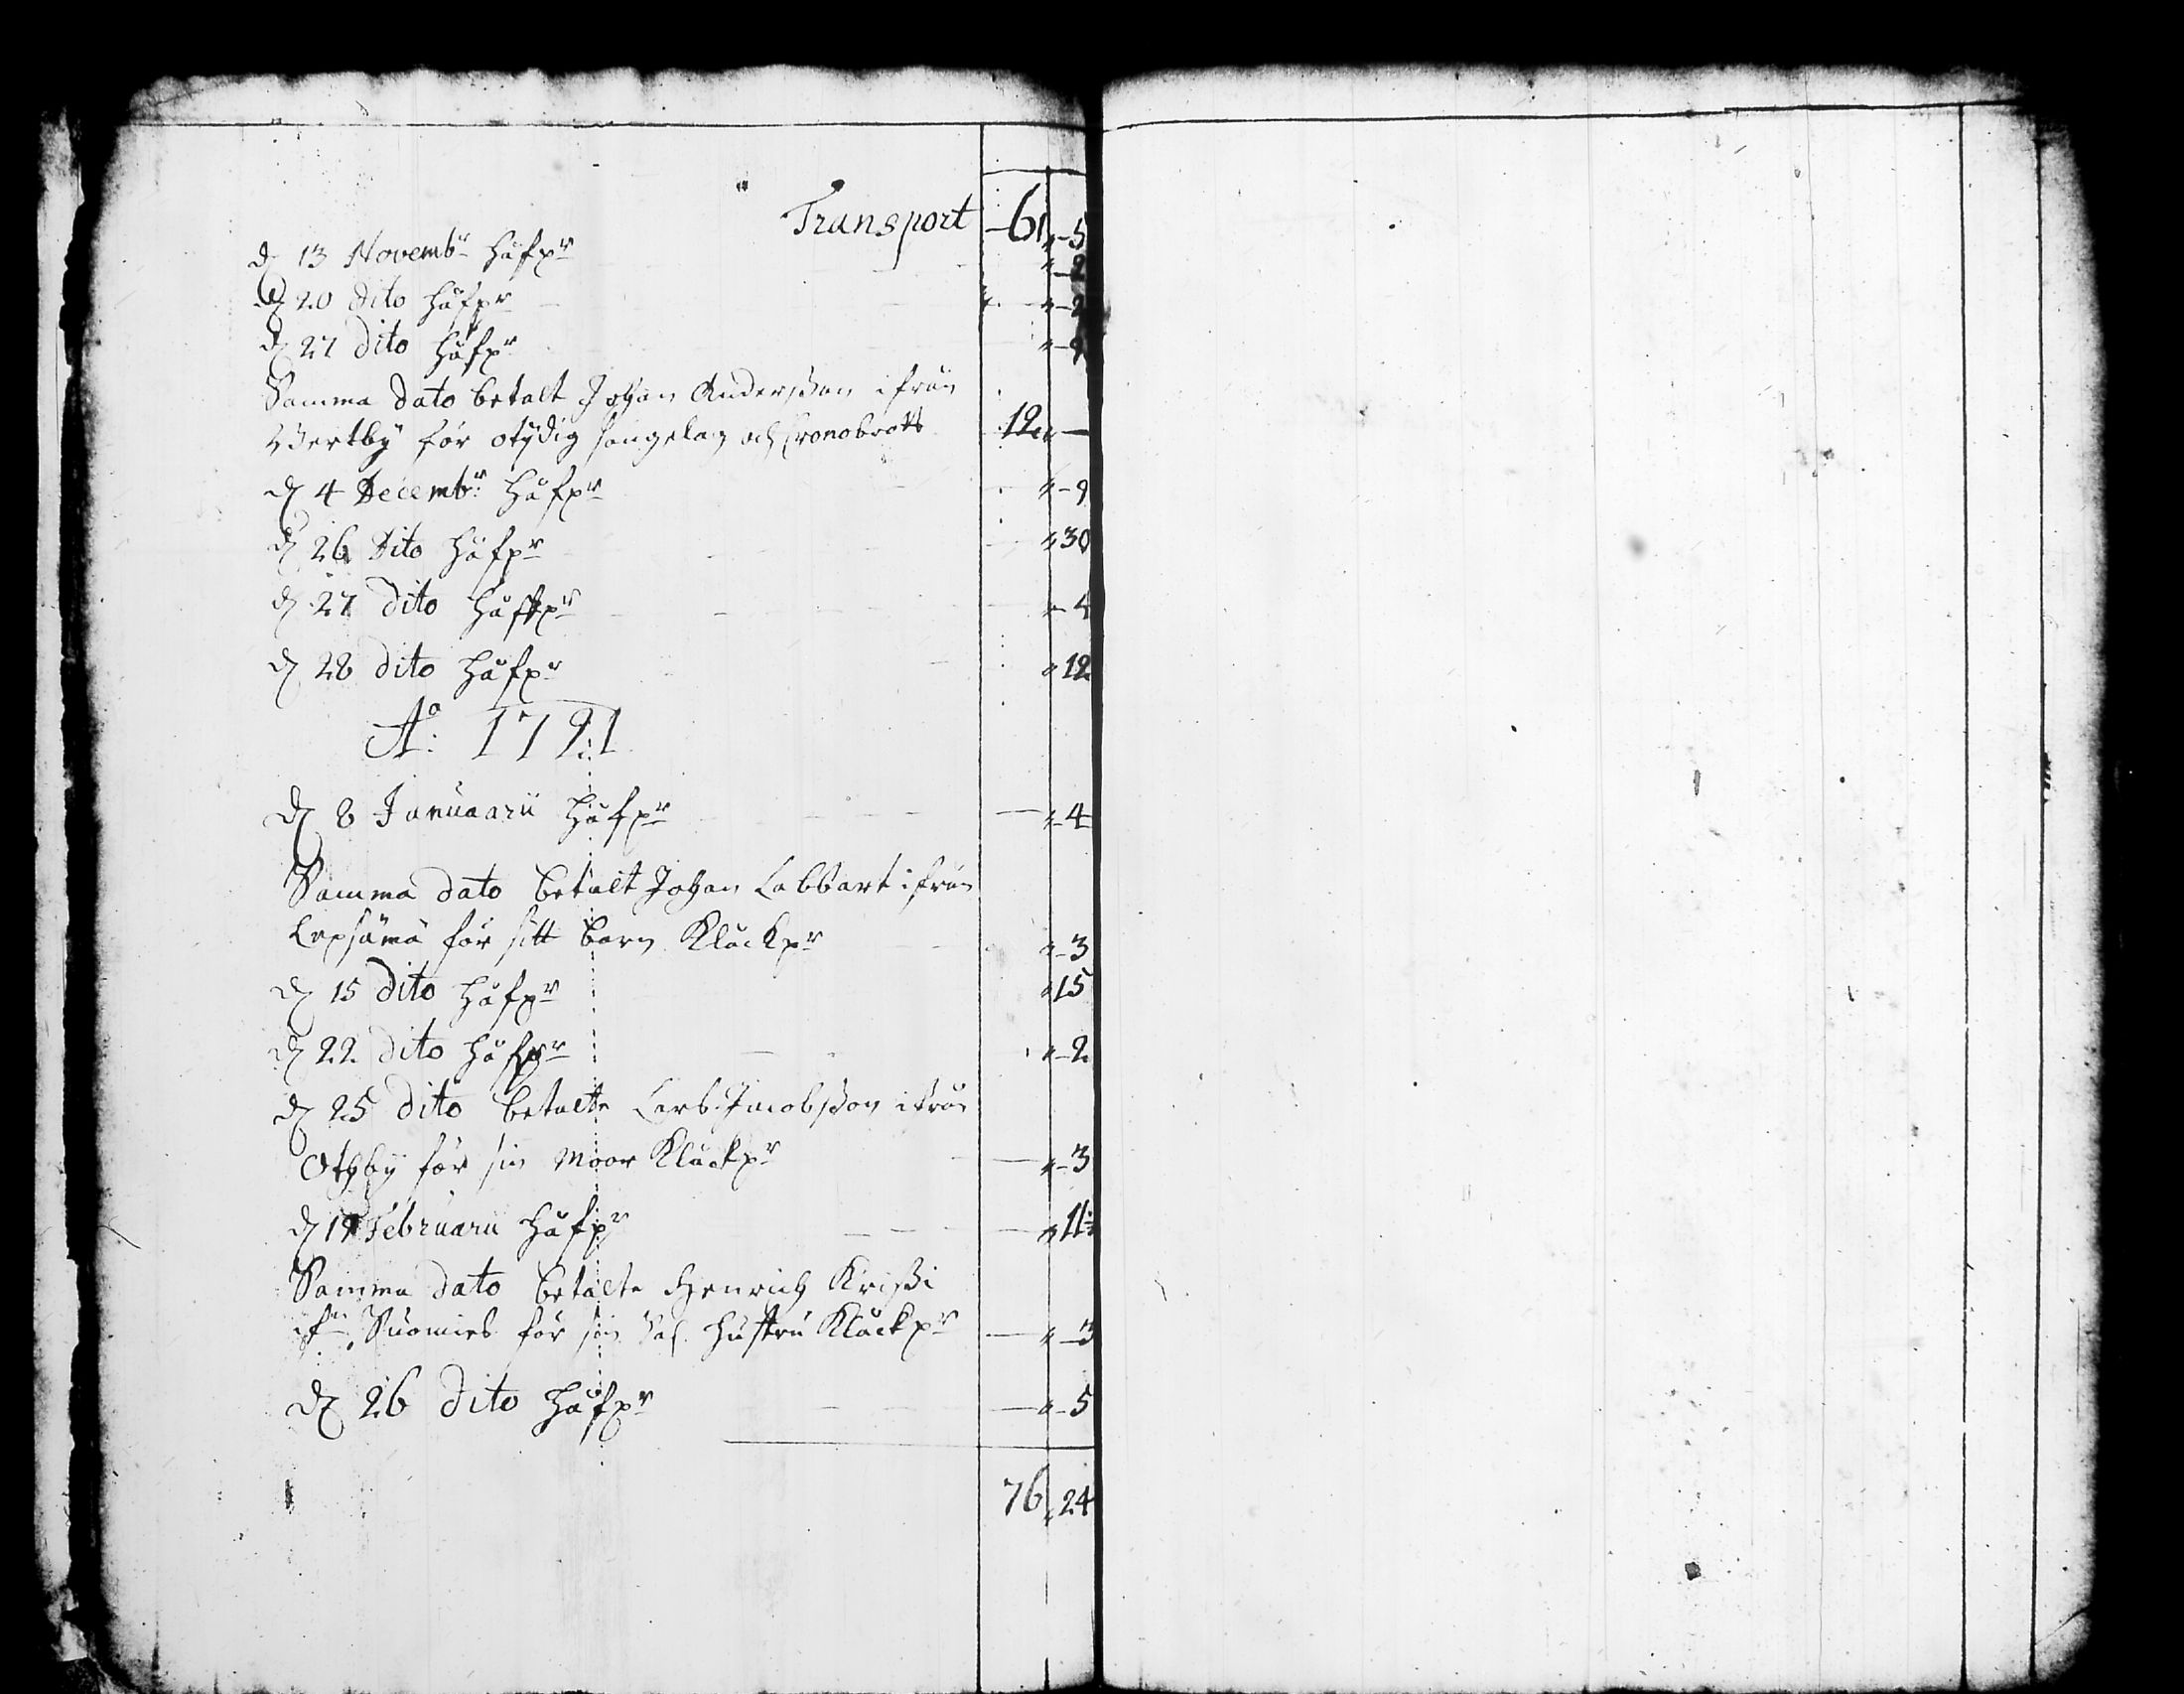 Transport 61 " 5
d 13 Novembr håfpr " 2
d 20 Dito håfpr " 2
d 27 dito håfpr "
Samma dato betalt Johan Andersson ifrån
Wertby för otydig sängelag och Cronobrott 12 " —
d 4 Decembr: håfpr " 9
d 26 Dito håfpr " 30
d 27 dito håfpr " 4
d 28 dito håfpr " 12
Ao: 1721
d 8 Januaarii håfpr " 4
Samma dato betalt Johan Labbart ifrån
Lepsämä för sitt barn Kläckpr " 3
d 15 dito håfpr " 15
d 22 dito håfpr " 2
d 25 dito betalte Lars Jacobsson ifrån
Othby för sin Moor Kläckpr " 3
d 19 Februarii håfpr " 11
Samma dato betalte Henrich Krissi
ifrn Suomies för sin Sal. hustru Kläckpr " 3
d 26 dito håfpr " 5
76 " 24